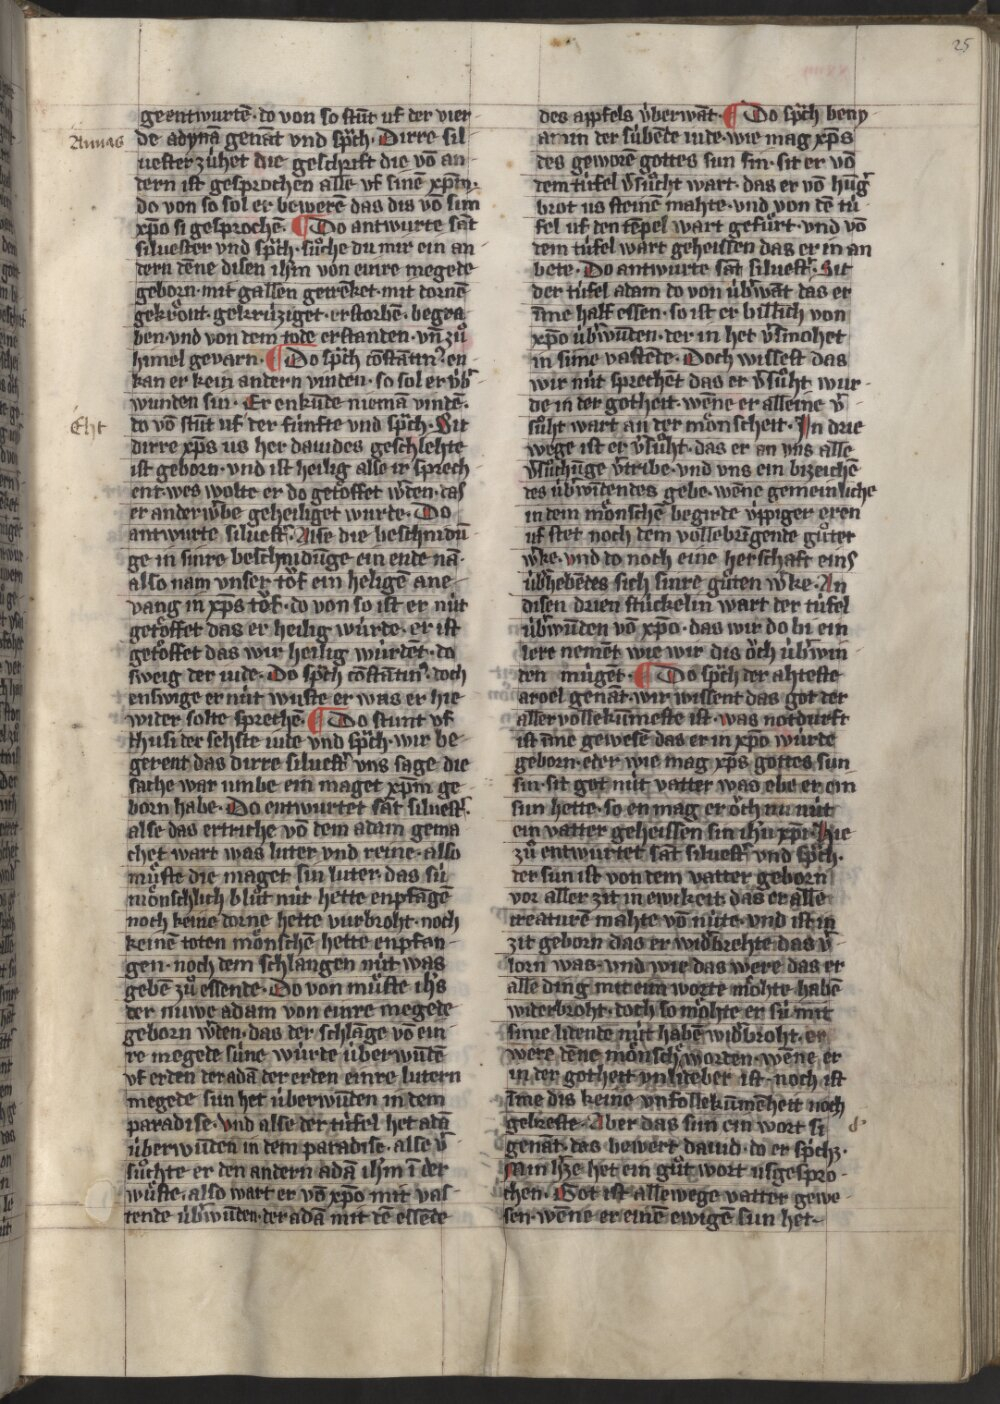 25
geentwurtē · do von so stūt uf der vier-
Annas
de adynā genāt vnd sp̄ch · Dirre sil-
uester zühet die geschrift die vō an-
dern ist gesprochen alle vf sinē xp̄m ·
do von so sol er bewerē das dis vō sim
xp̄o si gesprochē · ¶ Do antwurte sāt
siluester vnd sp̄ch · sůche du mir ein an-
dern dēne disen ih̄m von einre megede
geborn · mit gallen getrēket · mit dornē
gekrönt · gekrúziget · erstorbē · begra-
ben · vnd von dem tode erstanden · vn̄ zů
himel gevarn · ¶ Do sp̄ch cōstātin⁹ en-
kan er kein andern vinden · so sol er úb̄-
wunden sin · Er enkūde niemā vindē ·
Eht
do vō stūt uf der fúnfte vnd sp̄ch · Sit
dirre xp̄s us her dauides geschlehte
ist geborn · vnd ist heilig alse ir sprech-
ent · wes wolte er do getöffet w̄den · das
er anderw̄be geheiliget wurte · Do
antwurte siluest̄ · Alse die beschnidū-
ge in sinre beschnidūge ein ende nā ·
also nam vnser töf ein heligē ane-
vang in xp̄s töf · do von so ist er nút
getöffet das er heilig wúrde · er ist
getöffet das wir heilig wúrdēt · do
sweig der iude · Do sp̄ch cōstātin⁹ · doch
enswige er nút wuste er was er hie
wider solte sprechē · ¶ Do stunt vf
thusi der sehste iude vnd sp̄ch · wir be-
gerent das dirre siluest̄ vns sage die
sache war umbe ein maget xp̄m ge-
born habe · Do entwurtet sāt siluest̄ ·
alse das ertriche vō dem adam gema-
chet wart was luter vnd reine · also
můste die maget sin luter · das sú
mönschlich blůt nút hette enpfāgē
noch keine dorne hette vurbroht · noch
keinē toten mönschē hette enpfan-
gen · noch dem schlangen nút was
gebē zů essende · Do von můste ih̄s
der nuwe adam von einre megede
geborn w̄den · das der schlāge vō ein-
re megede súne wurde úberwūdē
vf erden der adā der erden einre lutern
megede sun het úberwūden in dem
paradise · vnd alse der túfel het adā
úberwūden in dem paradise · alse v̄-
sůchte er den andern adā ih̄m ī der
wůste · also wart er vō xp̄o mit vas-
tende úb̄wūden · der adā mit dē essēde
des appfels úberwāt · ¶ Do sp̄ch beny-
amin der súbēde iude · wie mag xp̄s
des geworē gottes sun sin · sit er vō
dem túfel v̄sůcht wart · das er vō hūḡ
brot us steine mahte · vnd von dē tú-
fel uf den tēpel wart gefůrt · vnd vō
dem túfel wart geheissen das er in an-
bete · Do antwurte sāt siluest̄ · Sit
der túfel adam do von úb̄wāt das er
āne half essen · so ist er billich von
xp̄o úb̄wūden · der in het v̄smohet
in sime vastēde · Doch wissest das
wir nút sprechēt das er v̄sůht wur-
de in der gotheit · wēne er alleine v̄-
sůht wart an der mönscheit · In drie
wege ist er v̄sůht · das er an vns alle
v̄sůchūge v̄tribe · vnd vns ein bizeichē
des úb̄wīdendes gebe · wēne gemeinliche
in dem mönschē begirde v̄ppiger eren
uf stet noch dem vollebrīgende gůter
w̄ke · vnd do noch eine herschaft eins
úb̄hebētes sich sinre gůten w̄ke · An
disen drien stúckelin wart der túfel
úb̄wūden vō xp̄o · das wir do bi ein
lere nemēt wie wir dis öch úb̄win-
den múgēt · ¶ Do sp̄ch der ahteste
aroel genāt · wir wissent das got der
aller vollekūmeste ist · was notdurft
ist āne gewesē das er in xp̄o wurde
geborn · eder wie mag xp̄s gottes sun
sin · sit got nút vatter was ebe er ein
sun hette · so en mag er öch nu nút
ein vatter geheissen sin ih̄u xp̄i · Hie
zů entwúrtet sāt siluest̄ vnd sp̄ch ·
der sun ist von dem vatter geborn
vor aller zit in ewikeit · das er alle
creaturē mahte vō núte · vnd ist in
zit geborn das er wid̄brehte das v̄-
lorn was · vnd wie das were das er
alle ding mit eim worte möhte habē
widerbroht · doch so möhte er sú mit
sime lidende nút habē wid̄broht · er
were dēne mönsch worden · wēne er
in der gotheit vnlideber ist · noch ist
īme dis keine vnfollekūmēheit noch
gebreste · Aber das sun ein wort si
genāt · das bewert dauid · do er sp̄chz ·
Min h̄ze het ein gůt wort usgespro-
chen · Got ist allewege vatter gewe-
sen · wēne er einē ewigē sun het-